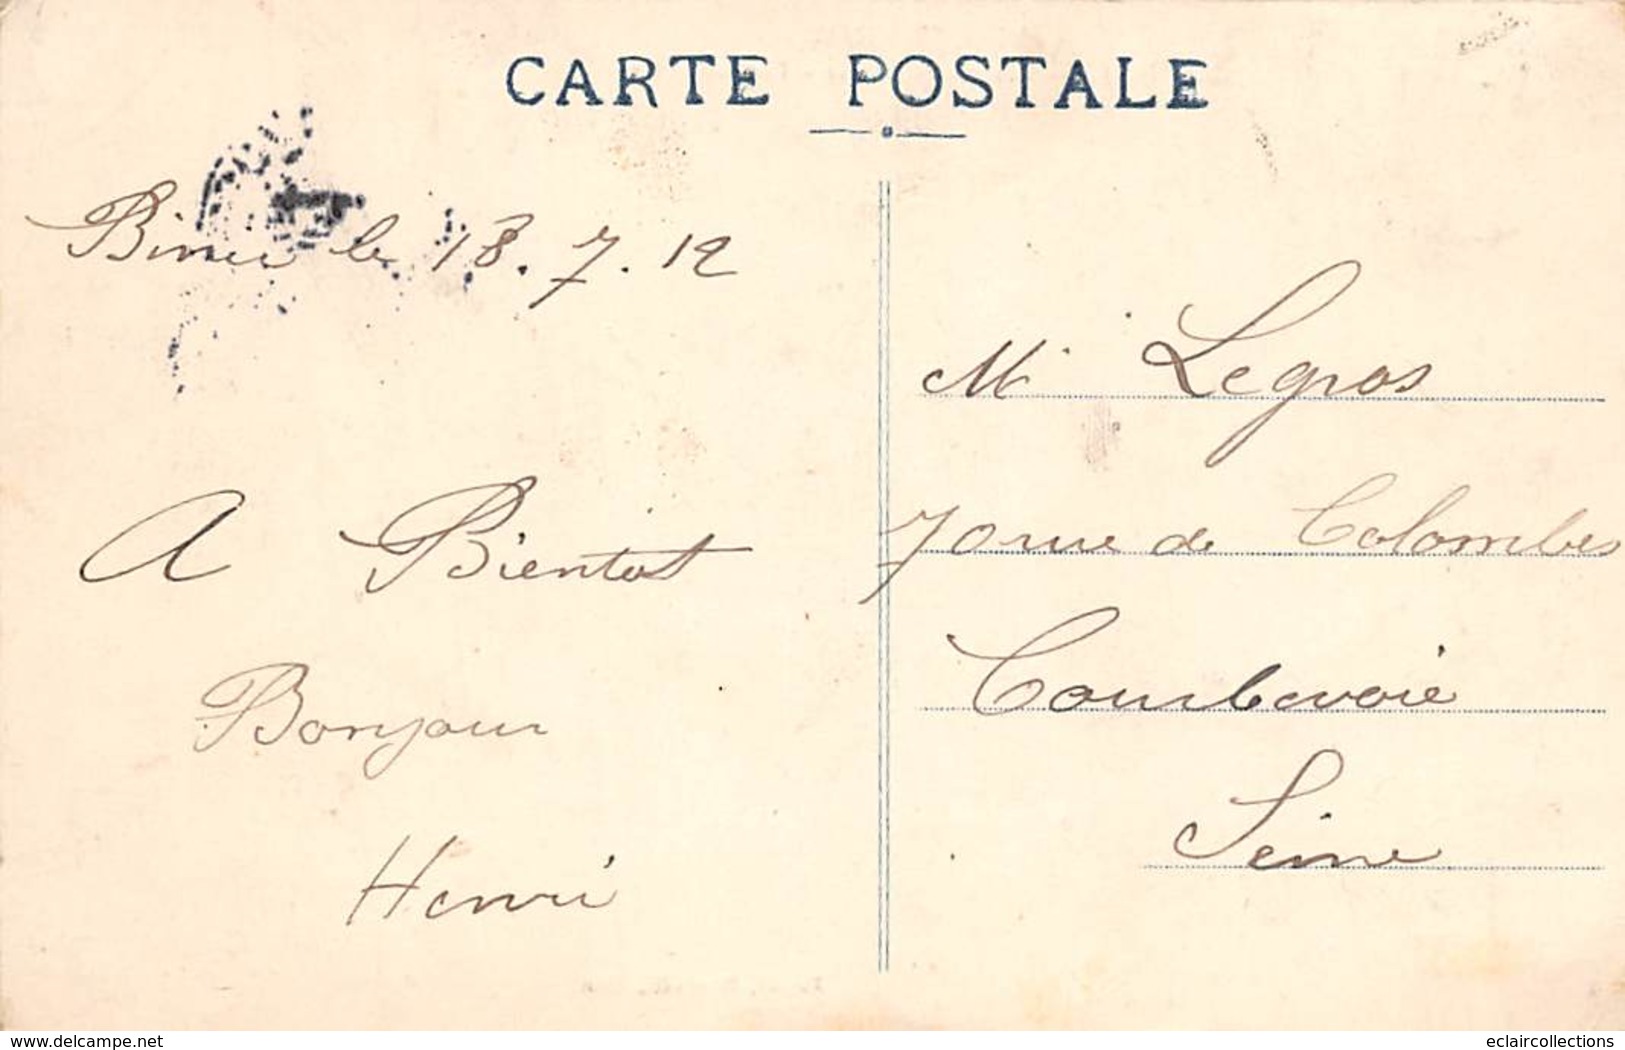 CARTE POSTALE
le 18.7.12
A Bientot
Bonjour
Henri
Mr Legros
70 rue de Colombes
Courbevoie
Seine
www.delcampe.net
eclaircollections